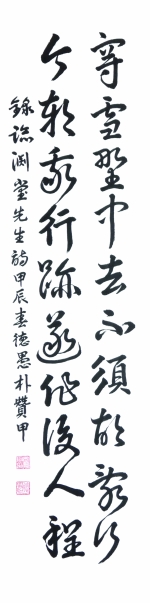 穿雪野中去不須胡亂行
今朝我行跡遂作後人程
錄臨淵堂先生詩甲辰春德愚朴贊甲